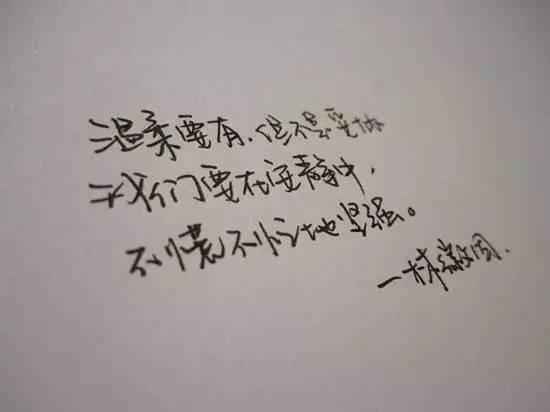 温柔要有,但不是妥协
我们要在安静中,
不慌不忙地坚强。
—林徽因.